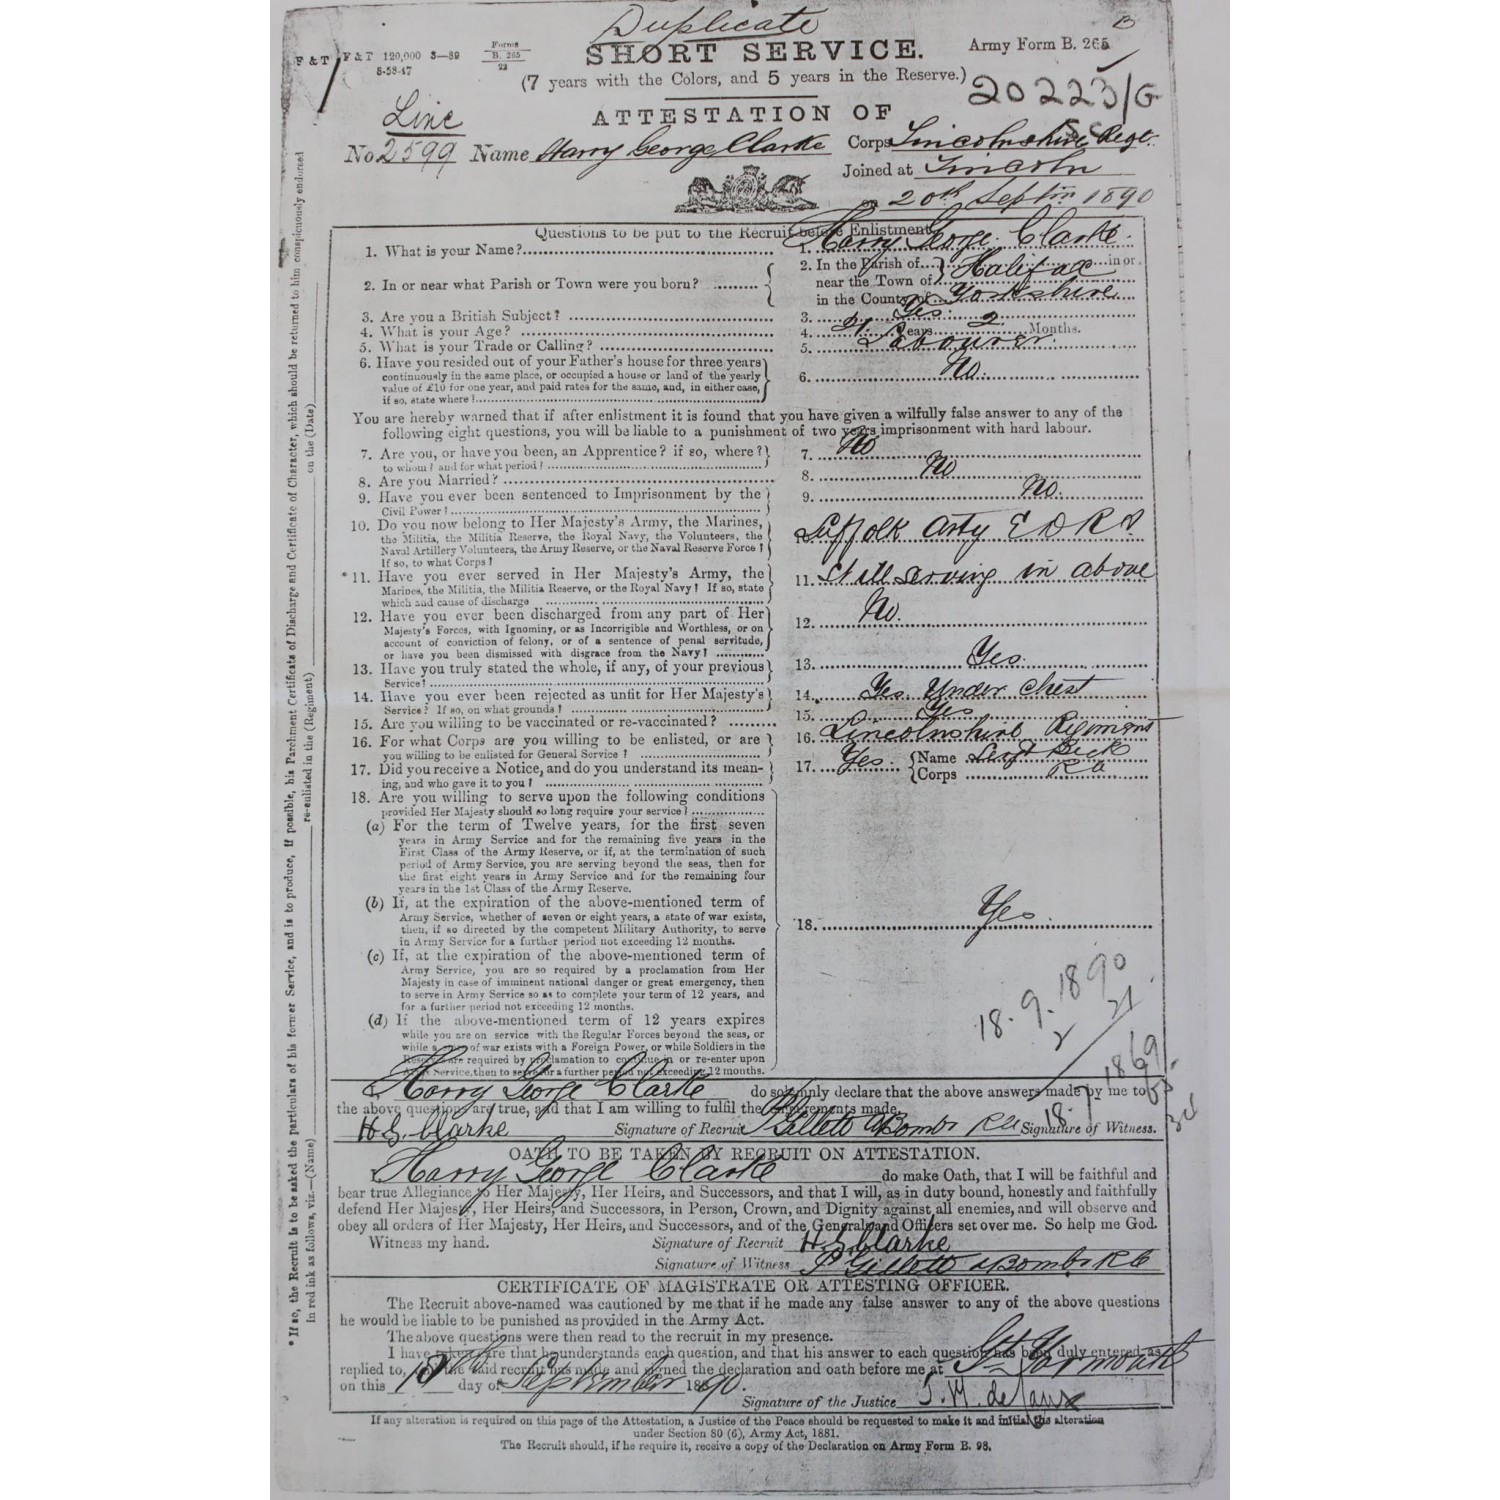 Duplicate
F & T F & T 120,000 3—89 Forms B. 265 22 SHORT SERVICE. Army Form B. 265 B
8-58-47
(7 years with the Colors, and 5 years in the Reserve.) 20223/G
Linc ATTESTATION OF
No 2599 Name Harry George Clarke Corps Lincolnshire Regt.
Joined at Lincoln
on 20th 1890
Questions to be put to the Recruit before Enlistment.
1. What is your Name? 1. Harry George Clarke
2. In or near what Parish or Town were you born? 2. In the Parish of Halifax in or
near the Town of
in the County of Yorkshire
3. Are you a British Subject? 3. Yes.
4. What is your Age? 4. 21 Years 2 Months.
5. What is your Trade or Calling? 5. Labourer.
6. Have you resided out of your Father's house for three years
continuously in the same place, or occupied a house or land of the yearly
value of £10 for one year, and paid rates for the same, and, in either case,
if so, state where? 6. No.
You are hereby warned that if after enlistment it is found that you have given a wilfully false answer to any of the
following eight questions, you will be liable to a punishment of two years imprisonment with hard labour.
7. Are you, or have you been, an Apprentice? if so, where?
to whom? and for what period? 7. No
8. Are you Married? 8. No
9. Have you ever been sentenced to Imprisonment by the
Civil Power? 9. No.
10. Do you now belong to Her Majesty's Army, the Marines,
the Militia, the Militia Reserve, the Royal Navy, the Volunteers, the
Naval Artillery Volunteers, the Army Reserve, or the Naval Reserve Force?
If so, to what Corps? 10. Suffolk Arty E D R A
* 11. Have you ever served in Her Majesty's Army, the
Marines, the Militia, the Militia Reserve, or the Royal Navy? If so, state
which and cause of discharge 11. Still serving in above
12. Have you ever been discharged from any part of Her
Majesty's Forces, with Ignominy, or as Incorrigible and Worthless, or on
account of conviction of felony, or of a sentence of penal servitude,
or have you been dismissed with disgrace from the Navy? 12. No.
13. Have you truly stated the whole, if any, of your previous
Service? 13. Yes.
14. Have you ever been rejected as unfit for Her Majesty's
Service? If so, on what grounds? 14. Yes. Under Chest
15. Are you willing to be vaccinated or re-vaccinated? 15. Yes
16. For what Corps are you willing to be enlisted, or are
you willing to be enlisted for General Service? 16. Lincolnshire Regiment
17. Did you receive a Notice, and do you understand its mean-
ing, and who gave it to you? 17. Yes. Name Sergt Beck
Corps RA
18. Are you willing to serve upon the following conditions
provided Her Majesty should so long require your service?
(a) For the term of Twelve years, for the first seven
years in Army Service and for the remaining five years in the
First Class of the Army Reserve, or if, at the termination of such
period of Army Service, you are serving beyond the seas, then for
the first eight years in Army Service and for the remaining four
years in the 1st Class of the Army Reserve.
(b) If, at the expiration of the above-mentioned term of
Army Service, whether of seven or eight years, a state of war exists,
then, if so directed by the competent Military Authority, to serve
in Army Service for a further period not exceeding 12 months.
18. Yes
(c) If, at the expiration of the above-mentioned term of
Army Service, you are so required by a proclamation from Her
Majesty in case of imminent national danger or great emergency, then
to serve in Army Service so as to complete your term of 12 years, and
for a further period not exceeding 12 months.
(d) If the above-mentioned term of 12 years expires
while you are on service with the Regular Forces beyond the seas, or
while a state of war exists with a Foreign Power, or while Soldiers in the
Reserve are required by proclamation to continue in or re-enter upon
Army Service, then to serve for a further period not exceeding 12 months.
18. 9. 1890
2 21
18. 7 1869
Harry George Clarke do solemnly declare that the above answers made by me to
the above questions are true, and that I am willing to fulfil the engagements made.
H G Clarke Signature of Recruit P Gillett ABombr RA Signature of Witness.
OATH TO BE TAKEN BY RECRUIT ON ATTESTATION.
Harry George Clarke do make Oath, that I will be faithful and
bear true Allegiance to Her Majesty, Her Heirs, and Successors, and that I will, as in duty bound, honestly and faithfully
defend Her Majesty, Her Heirs, and Successors, in Person, Crown, and Dignity against all enemies, and will observe and
obey all orders of Her Majesty, Her Heirs, and Successors, and of the Generals and Officers set over me. So help me God.
Witness my hand. Signature of Recruit H G Clarke
Signature of Witness P Gillett ABombr RA
CERTIFICATE OF MAGISTRATE OR ATTESTING OFFICER.
The Recruit above-named was cautioned by me that if he made any false answer to any of the above questions
he would be liable to be punished as provided in the Army Act.
The above questions were then read to the recruit in my presence.
I have taken care that he understands each question, and that his answer to each question has been duly entered as
replied to, and the said recruit has made and signed the declaration and oath before me at Gt Yarmouth
on this 18th day of September 1890.
Signature of the Justice
If any alteration is required on this page of the Attestation, a Justice of the Peace should be requested to make it and initial the alteration
under Section 80 (6), Army Act, 1881.
The Recruit should, if he require it, receive a copy of the Declaration on Army Form B. 98.
* If so, the Recruit is to be asked the particulars of his former Service, and is to produce, if possible, his Parchment Certificate of Discharge and Certificate of Character, which should be returned to him conspicuously endorsed
in red ink as follows, viz.—(Name) re-enlisted in the (Regiment) on the (Date)